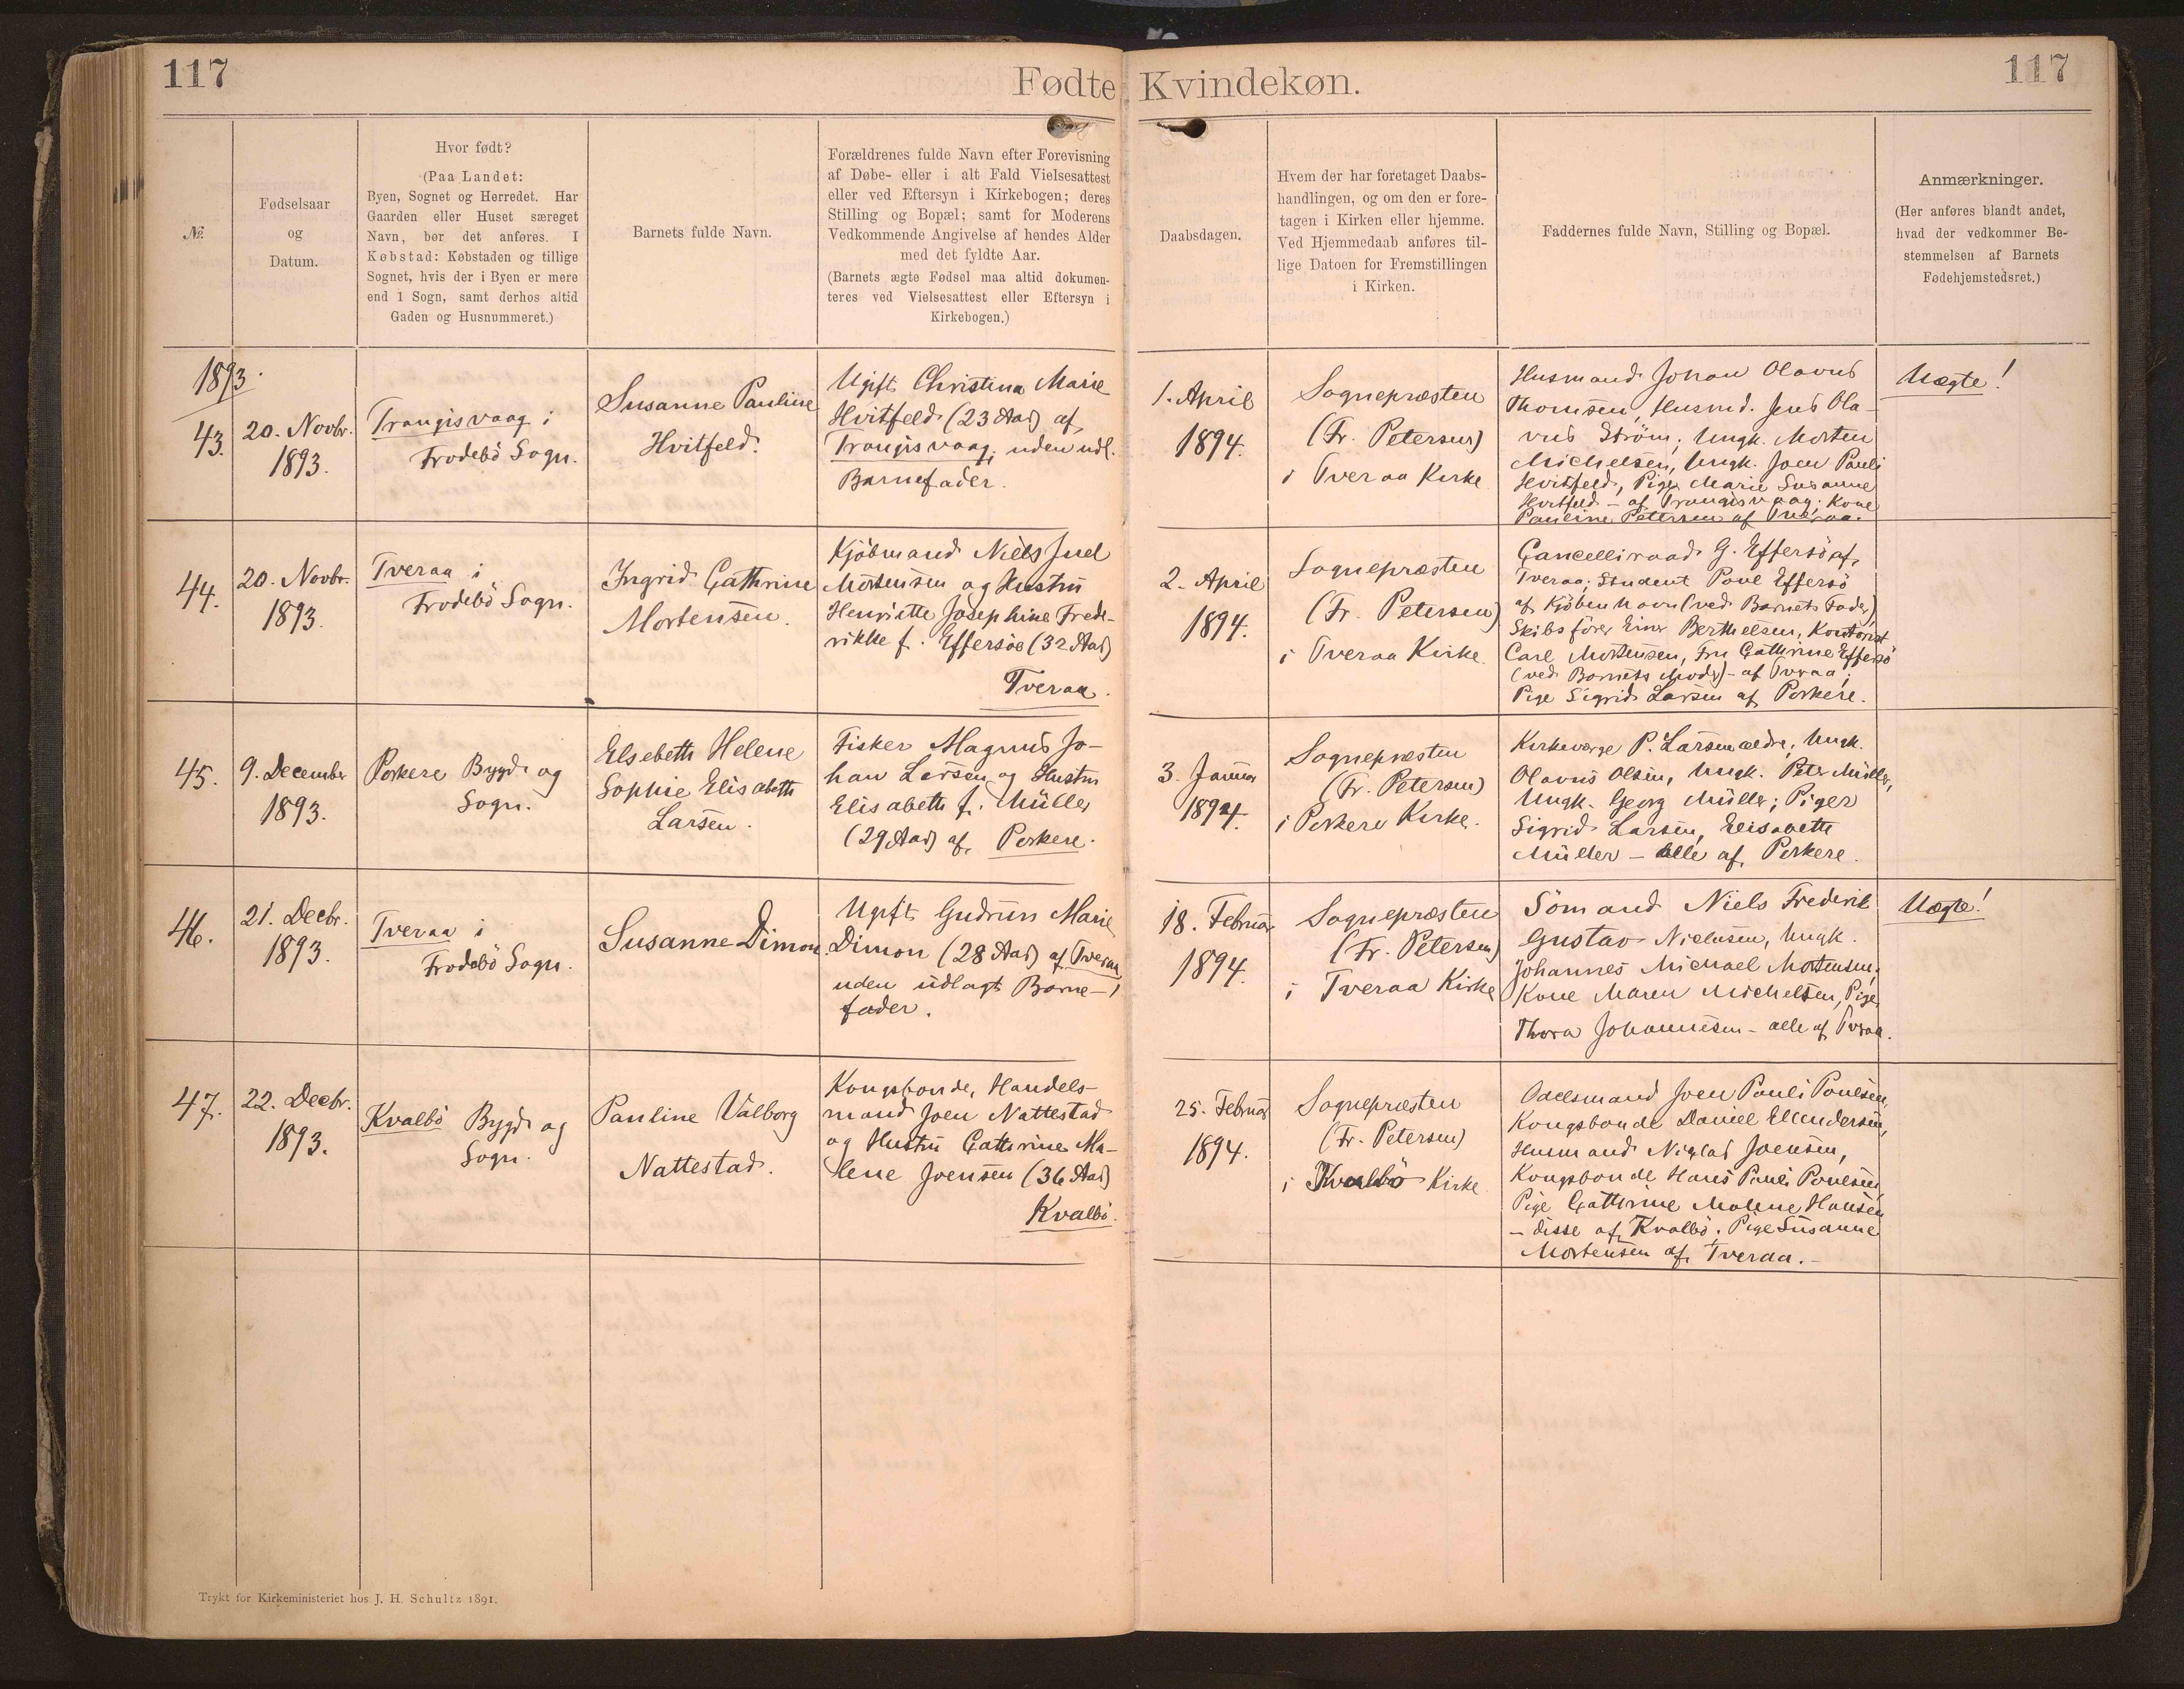 117
Fødte Kvindekøn.
117
№.
Fødselsaar
og
Datum.
Hvor født?
(Paa Landet:
Byen, Sognet og Herredet. Har
Gaarden eller Huset særeget
Navn, bør det anføres. I
Købstad: Købstaden og tillige
Sognet, hvis der i Byen er mere
end 1 Sogn, samt derhos altid
Gaden og Husnummeret.)
Barnets fulde Navn.
Forældrenes fulde Navn efter Forevisning
af Døbe- eller i alt Fald Vielsesattest
eller ved Eftersyn i Kirkebogen; deres
Stilling og Bopæl; samt for Moderens
Vedkommende Angivelse af hendes Alder
med det fyldte Aar.
(Barnets ægte Fødsel maa altid dokumen-
teres ved Vielsesattest eller Eftersyn i
Kirkebogen.)
Daabsdagen.
Hvem der har foretaget Daabs-
handlingen, og om den er fore-
tagen i Kirken eller hjemme.
Ved Hjemmedaab anføres til-
lige Datoen for Fremstillingen
i Kirken.
Faddernes fulde Navn, Stilling og Bopæl.
Anmærkninger.
(Her anføres blandt andet,
hvad der vedkommer Be-
stemmelsen af Barnets
Fødehjemstedsret.)
1893.
43.
20. Novbr.
1893.
Trangisvaag i
Frodebö Sogn.
Susanne Pauline
Hvitfeld.
Ugift Christina Marie
Hvitfeld (23 Aar) af
Trangisvaag, uden udl.
Barnefader.
1. April
1894.
Sognepræsten
(Fr. Petersen)
i Tveraa Kirke
Husmand Johan Olavus
Thomsen, Husmd. Jens Ola-
vus Ström; Ungk. Morten
Michelsen, Ungk. Joen Pauli
Hvitfeld, Pige Marie Susanne
Hvitfeld - af Trangisvaag; Kone
Pauline Petersen af Tveraa.
Uægte!
44.
20. Novbr.
1893.
Tveraa i
Frodebö Sogn.
Ingrid Cathrine
Mortensen.
Kjöbmand Niels Juel
Mortensen og Hustru
Henriette Josephine Frede-
rikke f. Effersöe (32 Aar)
Tveraa.
2. April
1894.
Sognepræsten
(Fr. Petersen)
i Tveraa Kirke.
Cancelliraad G. Effersö af
Tveraa; Student Poul Effersö
af Kjöbenhavn (ved Barnets Fader)
Skibsförer Einer Berthelsen, Kontorist
Carl Mortensen, Fru Cathrine Effersö
(ved Barnets Moder) - af Tveraa;
Pige Sigrid Larsen af Porkere.
45.
9. December
1893.
Porkere Bygd og
Sogn.
Elsebeth Helene
Sophie Elisabeth
Larsen.
Fisker Magnus Jo-
han Larsen og Hustru
Elisabeth f. Müller
(29 Aar) af Porkere.
3. Januar
1894.
Sognepræsten
(Fr. Petersen)
i Porkere Kirke.
Kirkeværge P. Larsen ældre, Ungk.
Olavus Olsen, Ungk. Peter Müller,
Ungk. Georg Müller; Piger
Sigrid Larsen, Elisabeth
Müller - alle af Porkere.
46.
21. Decbr.
1893.
Tveraa i
Frodebö Sogn.
Susanne Dimon
Ugift Gudrun Marie
Dimon (28 Aar) af Tveraa,
uden udlagt Barne-
fader.
18. Februar
1894.
Sognepræsten
(Fr. Petersen)
i Tveraa Kirke
Sömand Niels Frederik
Gustav Nielsen, Ungk.
Johannes Michael Mortensen;
Kone Maren Michelsen, Pige
Thora Johannesen - alle af Tveraa.
Uægte!
47.
22. Decbr.
1893.
Kvalbö Bygd og
Sogn.
Pauline Valborg
Nattestad.
Kongsbonde, Handels-
mand Joen Nattestad
og Hustru Cathrine Ma-
lene Joensen (36 Aar)
Kvalbö.
25. Februar
1894.
Sognepræsten
(Fr. Petersen)
i Kvalbö Kirke.
Odelsmand Joen Pauli Poulsen,
Kongsbonde Daniel Ellendersen,
Husmand Niclas Joensen,
Kongsbonde Hans Pauli Poulsen,
Pige Cathrine Malene Hansen
- disse af Kvalbö; Pige Susanne
Mortensen af Tveraa.-
Trykt for Kirkeministeriet hos J. H. Schultz 1891.